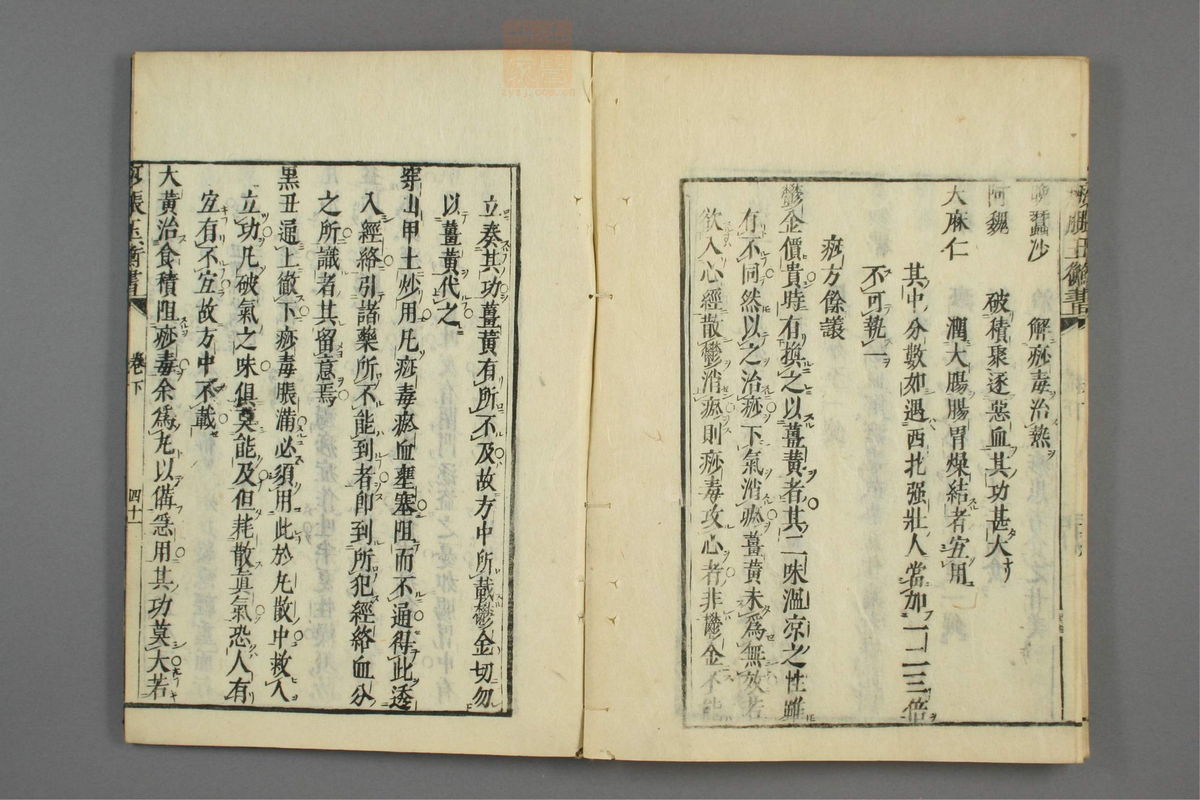 痧脹玉衡書
晚蠶沙　解痧毒治熱
阿魏　破積聚逐惡血其功甚大
大麻仁　潤大腸腸胃燥結者宜用
其中分數如遇西北强壯人當加一二三倍
不可執一
痧方餘議
鬱金價貴時有換之以薑黃者其二味溫凉之性雖
有不同然以之治痧下氣消瘀薑黃未爲無效若
欲入心經散鬱消瘀則痧毒攻心者非鬱金不能
立奏其功薑黃有所不及故方中所載鬱金切勿
以薑黃代之
穿山甲土炒用凡痧毒瘀血壅塞阻而不通得此透
入經絡引諸藥所不能到者卽到所犯經絡血分
之所識者其留意焉
黑丑通上徹下痧毒脹滿必須用此於凡散中救人
立功凡破氣之味俱莫能及但耗散眞氣恐人有
宜有不宜故方中不載
大黃治食積阻痧毒余爲丸以備急用其功莫大若
痧脹玉衡書　卷下　四十一
zysj.com.cn